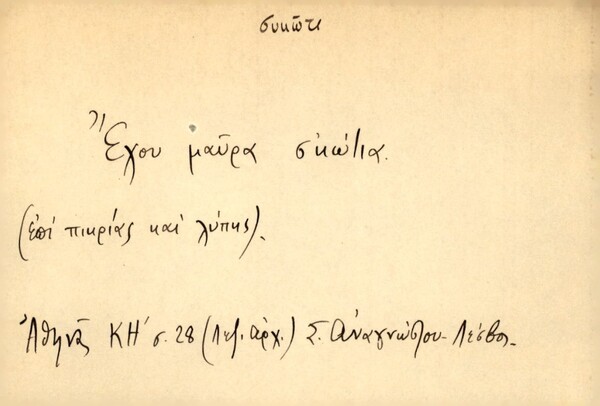 συκῶτι
Ἔχου μαῦρα σ'κώτια.
(ἐπί πικρίας καί λύπης).
Ἀθηνᾶ ΚΗ' σ. 28 (Λεξ. ἀρχ.) Σ. Ἀναγνώστου - Λέσβος -